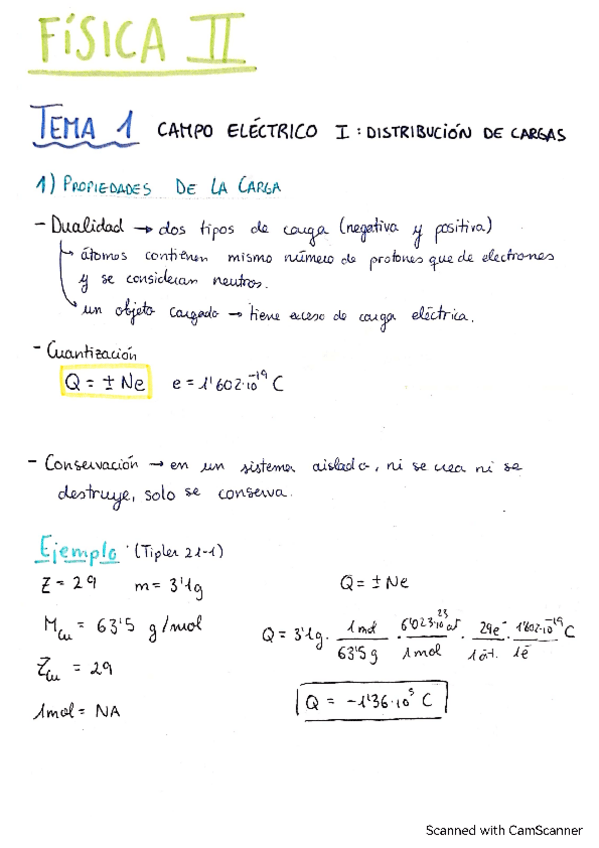 FÍSICA II
TEMA 1 CAMPO ELÉCTRICO I : DISTRIBUCIÓN DE CARGAS
1) PROPIEDADES DE LA CARGA
- Dualidad → dos tipos de carga (negativa y positiva)
átomos contienen mismo número de protones que de electrones
y se consideran neutros.
un objeto cargado → tiene exceso de carga eléctrica.
- Cuantización
Q = ± Ne e = 1'602·10⁻¹⁹ C
- Conservación → en un sistema aislado, ni se crea ni se
destruye, solo se conserva.
Ejemplo (Tipler 21-1)
Z = 29 m = 3'1g Q = ± Ne
M_Cu = 63'5 g/mol
Q = 3'1g · 1mol/63'5g · 6'023·10²³ at/1mol · 29e⁻/1át. · 1'602·10⁻¹⁹ C/1e⁻
Z_Cu = 29
1mol = NA
Q = -1'36·10⁵ C
Scanned with CamScanner